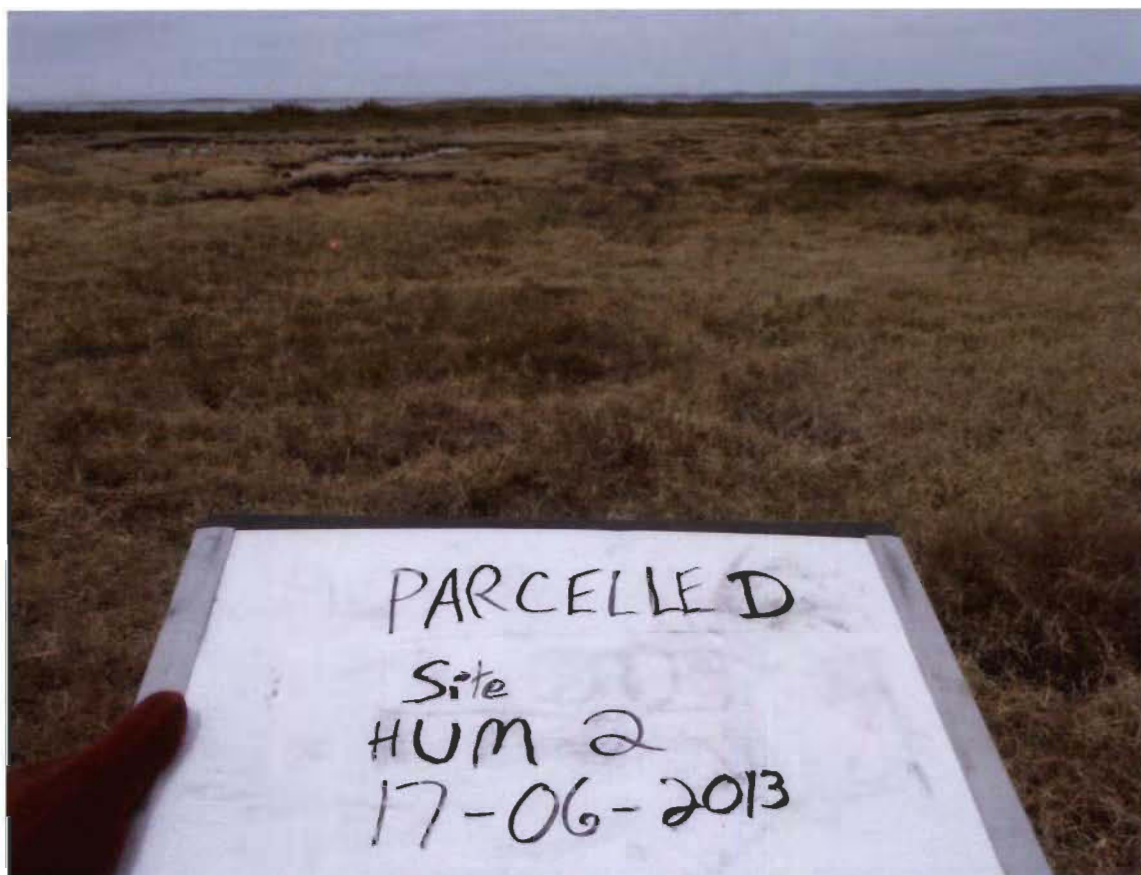 PARCELLE D
Site
HUM 2
17-06-2013